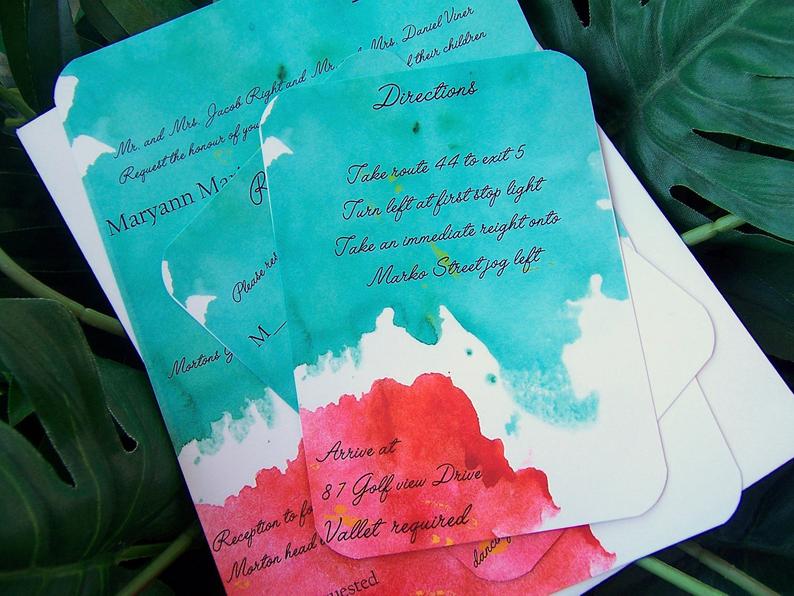 Mr. and Mrs. Jacob Right and Mr. Mrs. Daniel Viner
Request the honour of you their children
Maryann
Please res
M__
Mortons
Reception to fo
Morton head
uested
dancing
Directions
Take route 44 to exit 5
Turn left at first stop light
Take an immediate reight onto
Marko Street jog left
Arrive at
87 Golf view Drive
Vallet required